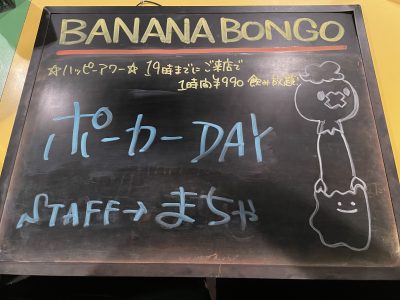 BANANA BONGO
☆ハッピーアワー☆ 19時までにご来店で
1時間¥990 飲み放題
ポーカーDAY
STAFF→まちゃ